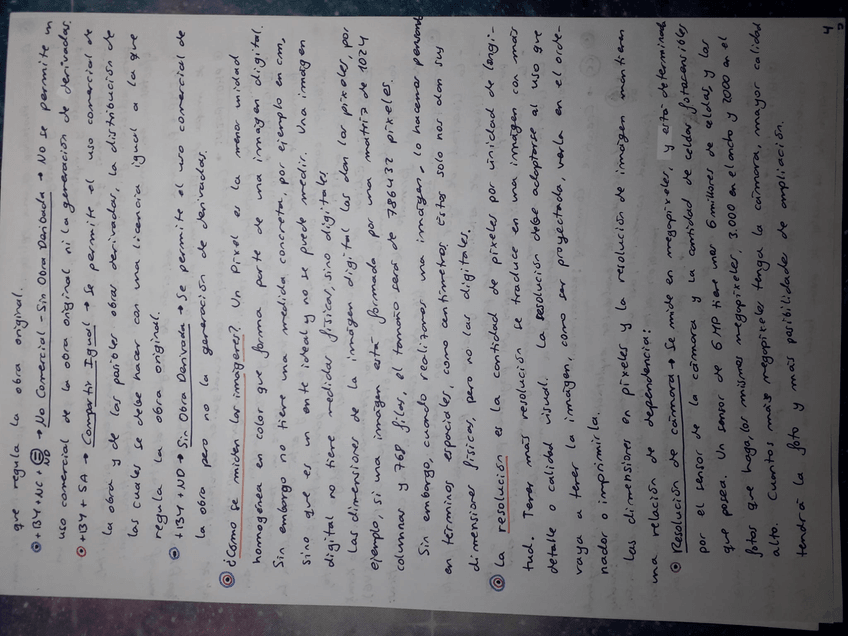 que regula la obra original.
+BY+NC+ND → No Comercial-Sin Obra Derivada → No se permite un
uso comercial de la obra original ni la generación de derivadas.
+BY+SA → Compartir Igual → Se permite el uso comercial de
la obra y de las posibles obras derivadas, la distribución de
las cuales se debe hacer con una licencia igual a la que
regula la obra original.
+BY+ND → Sin Obra Derivada → Se permite el uso comercial de
la obra pero no la generación de derivadas.
¿Cómo se miden las imágenes? Un Pixel es la menor unidad
homogénea en color que forma parte de una imagen digital.
Sin embargo no tiene una medida concreta, por ejemplo en cm,
sino que es un ente ideal y no se puede medir. Una imagen
digital no tiene medidas físicas, sino digitales
Las dimensiones de la imágen digital las dan los píxeles, por
ejemplo, si una imágen está formada por una matriz de 1024
columnas y 768 filas, el tamaño será de 786432 píxeles
Sin embargo, cuando realizamos una imágen, lo hacemos pensand
en términos espaciales, como centímetros. Éstos solo nos dan sus
dimensiones físicas, pero no las digitales.
La resolución es la cantidad de píxeles por unidad de longi-
tud. Tener más resolución se traduce en una imágen con más
detalle o calidad visual. La resolución debe adaptarse al uso que
vaya a tener la imágen, como ser proyectada, verla en el orde-
nador o imprimirla.
Las dimensiones en píxeles y la resolución de imágen mantienen
una relación de dependencia:
Resolución de cámara → Se mide en megapíxeles, y está determinada
por el sensor de la cámara y la cantidad de celdas fotosensibles
que posea. Un sensor de 6MP tiene unos 6 millones de celdas, y las
fotos que haga, los mismos megapíxeles, 3.000 en el ancho y 2000 en el
alto. Cuantos más megapíxeles tenga la cámara, mayor calidad
tendrá la foto y más posibilidades de ampliación.
4